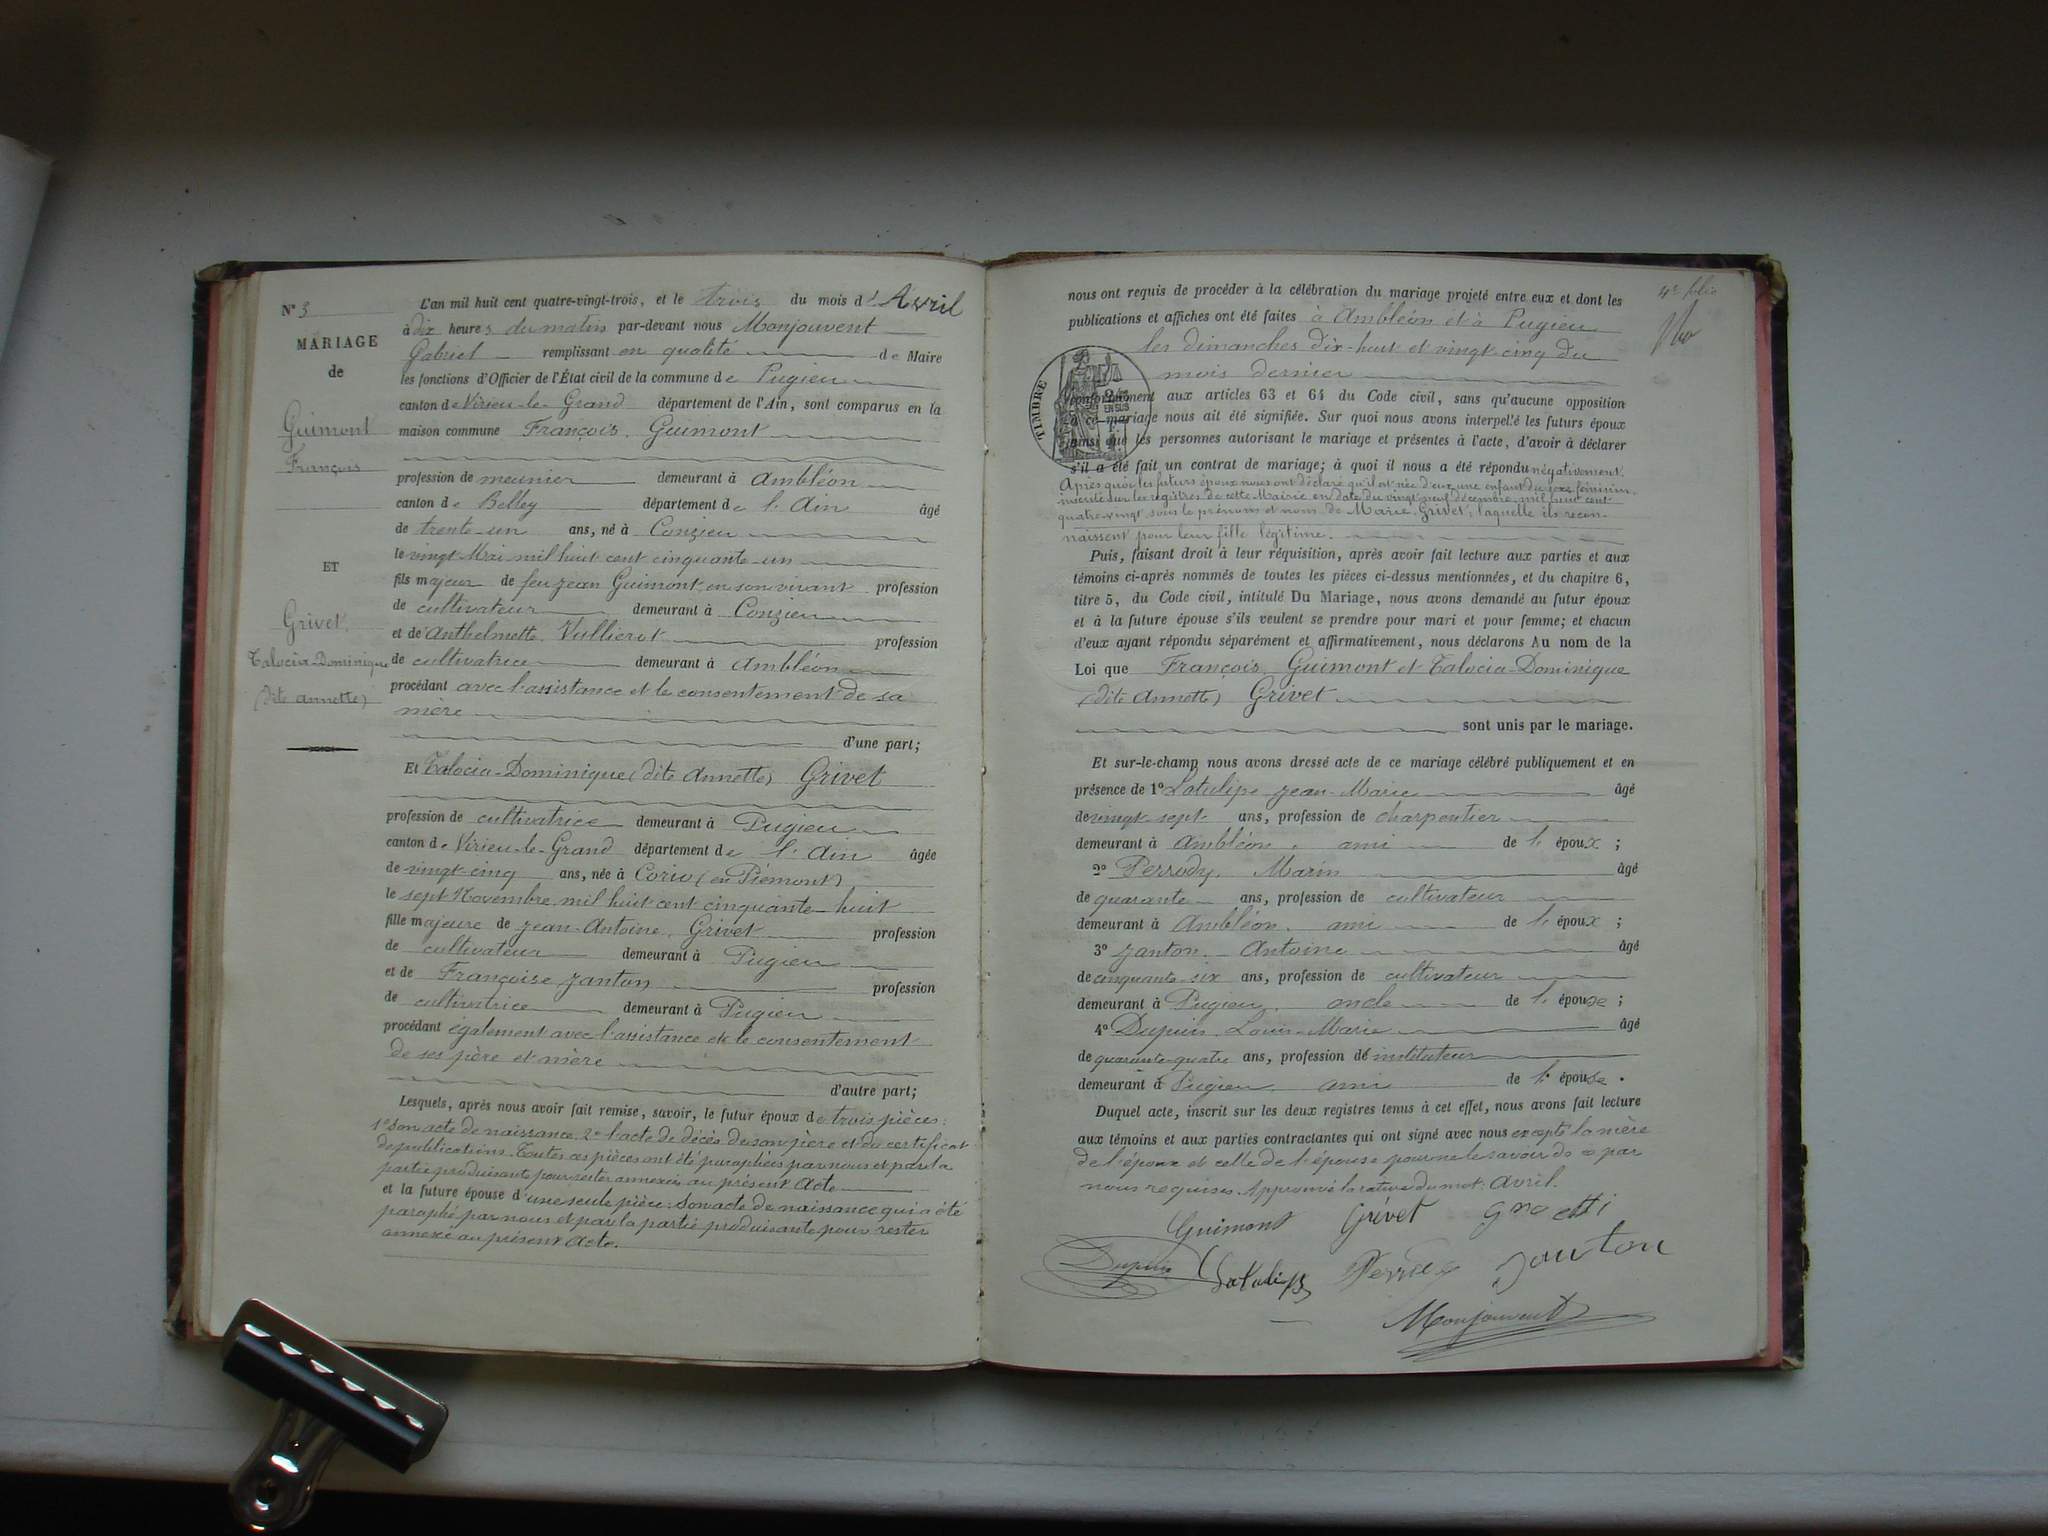 N° 3
MARIAGE
de
Guimont
François
ET
Grivet
Talocia-Dominique
(dite Annette)
L'an mil huit cent quatre-vingt-trois, et le trois du mois d'Avril
à dix heures du matin par-devant nous Monjouvent
Gabriel remplissant en qualité de Maire
les fonctions d'Officier de l'État civil de la commune de Pugieu
canton de Virieu-le-Grand département de l'Ain, sont comparus en la
maison commune François Guimont
profession de meunier demeurant à Ambléon
canton de Belley département de l'Ain âgé
de trente-un ans, né à Conzieu
le vingt Mai mil huit cent cinquante-un
fils majeur de feu Jean Guimont en son vivant profession
de cultivateur demeurant à Conzieu
et de Anthelmette Vullierot profession
de cultivatrice demeurant à Ambléon
procédant avec l'assistance et le consentement de sa
mère
d'une part;
Et Talocia-Dominique (dite Annette) Grivet
profession de cultivatrice demeurant à Pugieu
canton de Virieu-le-Grand département de l'Ain âgée
de vingt-cinq ans, née à Corio (en Piémont)
le sept Novembre mil huit cent cinquante-huit
fille majeure de Jean-Antoine Grivet profession
de cultivateur demeurant à Pugieu
et de Françoise Janton profession
de cultivatrice demeurant à Pugieu
procédant également avec l'assistance et le consentement
de ses père et mère
d'autre part;
Lesquels, après nous avoir fait remise, savoir, le futur époux de trois pièces:
1° son acte de naissance 2° l'acte de décès de son père et du certificat
de publications. Toutes ces pièces ont été paraphées par nous et par la
partie produisante pour rester annexées au présent Acte
et la future épouse d'une seule pièce: Son acte de naissance qui a été
paraphé par nous et par la partie produisante pour rester
annexé au présent Acte.
nous ont requis de procéder à la célébration du mariage projeté entre eux et dont les
publications et affiches ont été faites à Ambléon et à Pugieu
les dimanches dix-huit et vingt-cinq du
mois dernier
TIMBRE
conformément aux articles 63 et 64 du Code civil, sans qu'aucune opposition
à ce mariage nous ait été signifiée. Sur quoi nous avons interpellé les futurs époux
ainsi que les personnes autorisant le mariage et présentes à l'acte, d'avoir à déclarer
s'il a été fait un contrat de mariage; à quoi il nous a été répondu négativement.
Après quoi les futurs époux nous ont déclaré qu'il est née d'eux une enfant du sexe féminin
inscrite sur les registres de cette Mairie en date du vingt neuf décembre mil huit cent
quatre-vingt sous le prénom et nom de Marie Grivet, laquelle ils recon-
naissent pour leur fille légitime.
Puis, faisant droit à leur réquisition, après avoir fait lecture aux parties et aux
témoins ci-après nommés de toutes les pièces ci-dessus mentionnées, et du chapitre 6,
titre 5, du Code civil, intitulé Du Mariage, nous avons demandé au futur époux
et à la future épouse s'ils veulent se prendre pour mari et pour femme; et chacun
d'eux ayant répondu séparément et affirmativement, nous déclarons Au nom de la
Loi que François Guimont et Talocia-Dominique
(dite Annette) Grivet
sont unis par le mariage.
Et sur-le-champ nous avons dressé acte de ce mariage célébré publiquement et en
présence de 1° Latulipe Jean-Marie âgé
de vingt sept ans, profession de charpentier
demeurant à Ambléon, ami de l'époux;
2° Perrody Marin âgé
de quarante ans, profession de cultivateur
demeurant à Ambléon, ami de l'époux;
3° Janton Antoine âgé
de cinquante-six ans, profession de cultivateur
demeurant à Pugieu, oncle de l'épouse;
4° Dupuis Louis-Marie âgé
de quarante-quatre ans, profession de instituteur
demeurant à Pugieu, ami de l'épouse.
Duquel acte, inscrit sur les deux registres tenus à cet effet, nous avons fait lecture
aux témoins et aux parties contractantes qui ont signé avec nous excepté la mère
de l'époux et celle de l'épouse pour ne le savoir de ce par
nous requises. Approuvé la rature du mot: Avril.
Guimont Grivet
Dupuis Latulipe Janton
Monjouvent